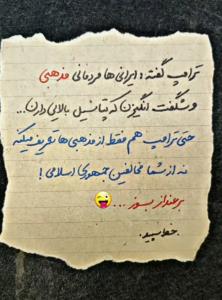 ترامپ گفته: ایرانی‌ها مردمانی مذهبی
و شگفت انگیزن که پتانسیل بالایی دارن...
حتی ترامپ هم فقط از مذهبی‌ها تعریف میکنه
نه از شما مخالفین جمهوری اسلامی!
برعنداز بسوز...😜